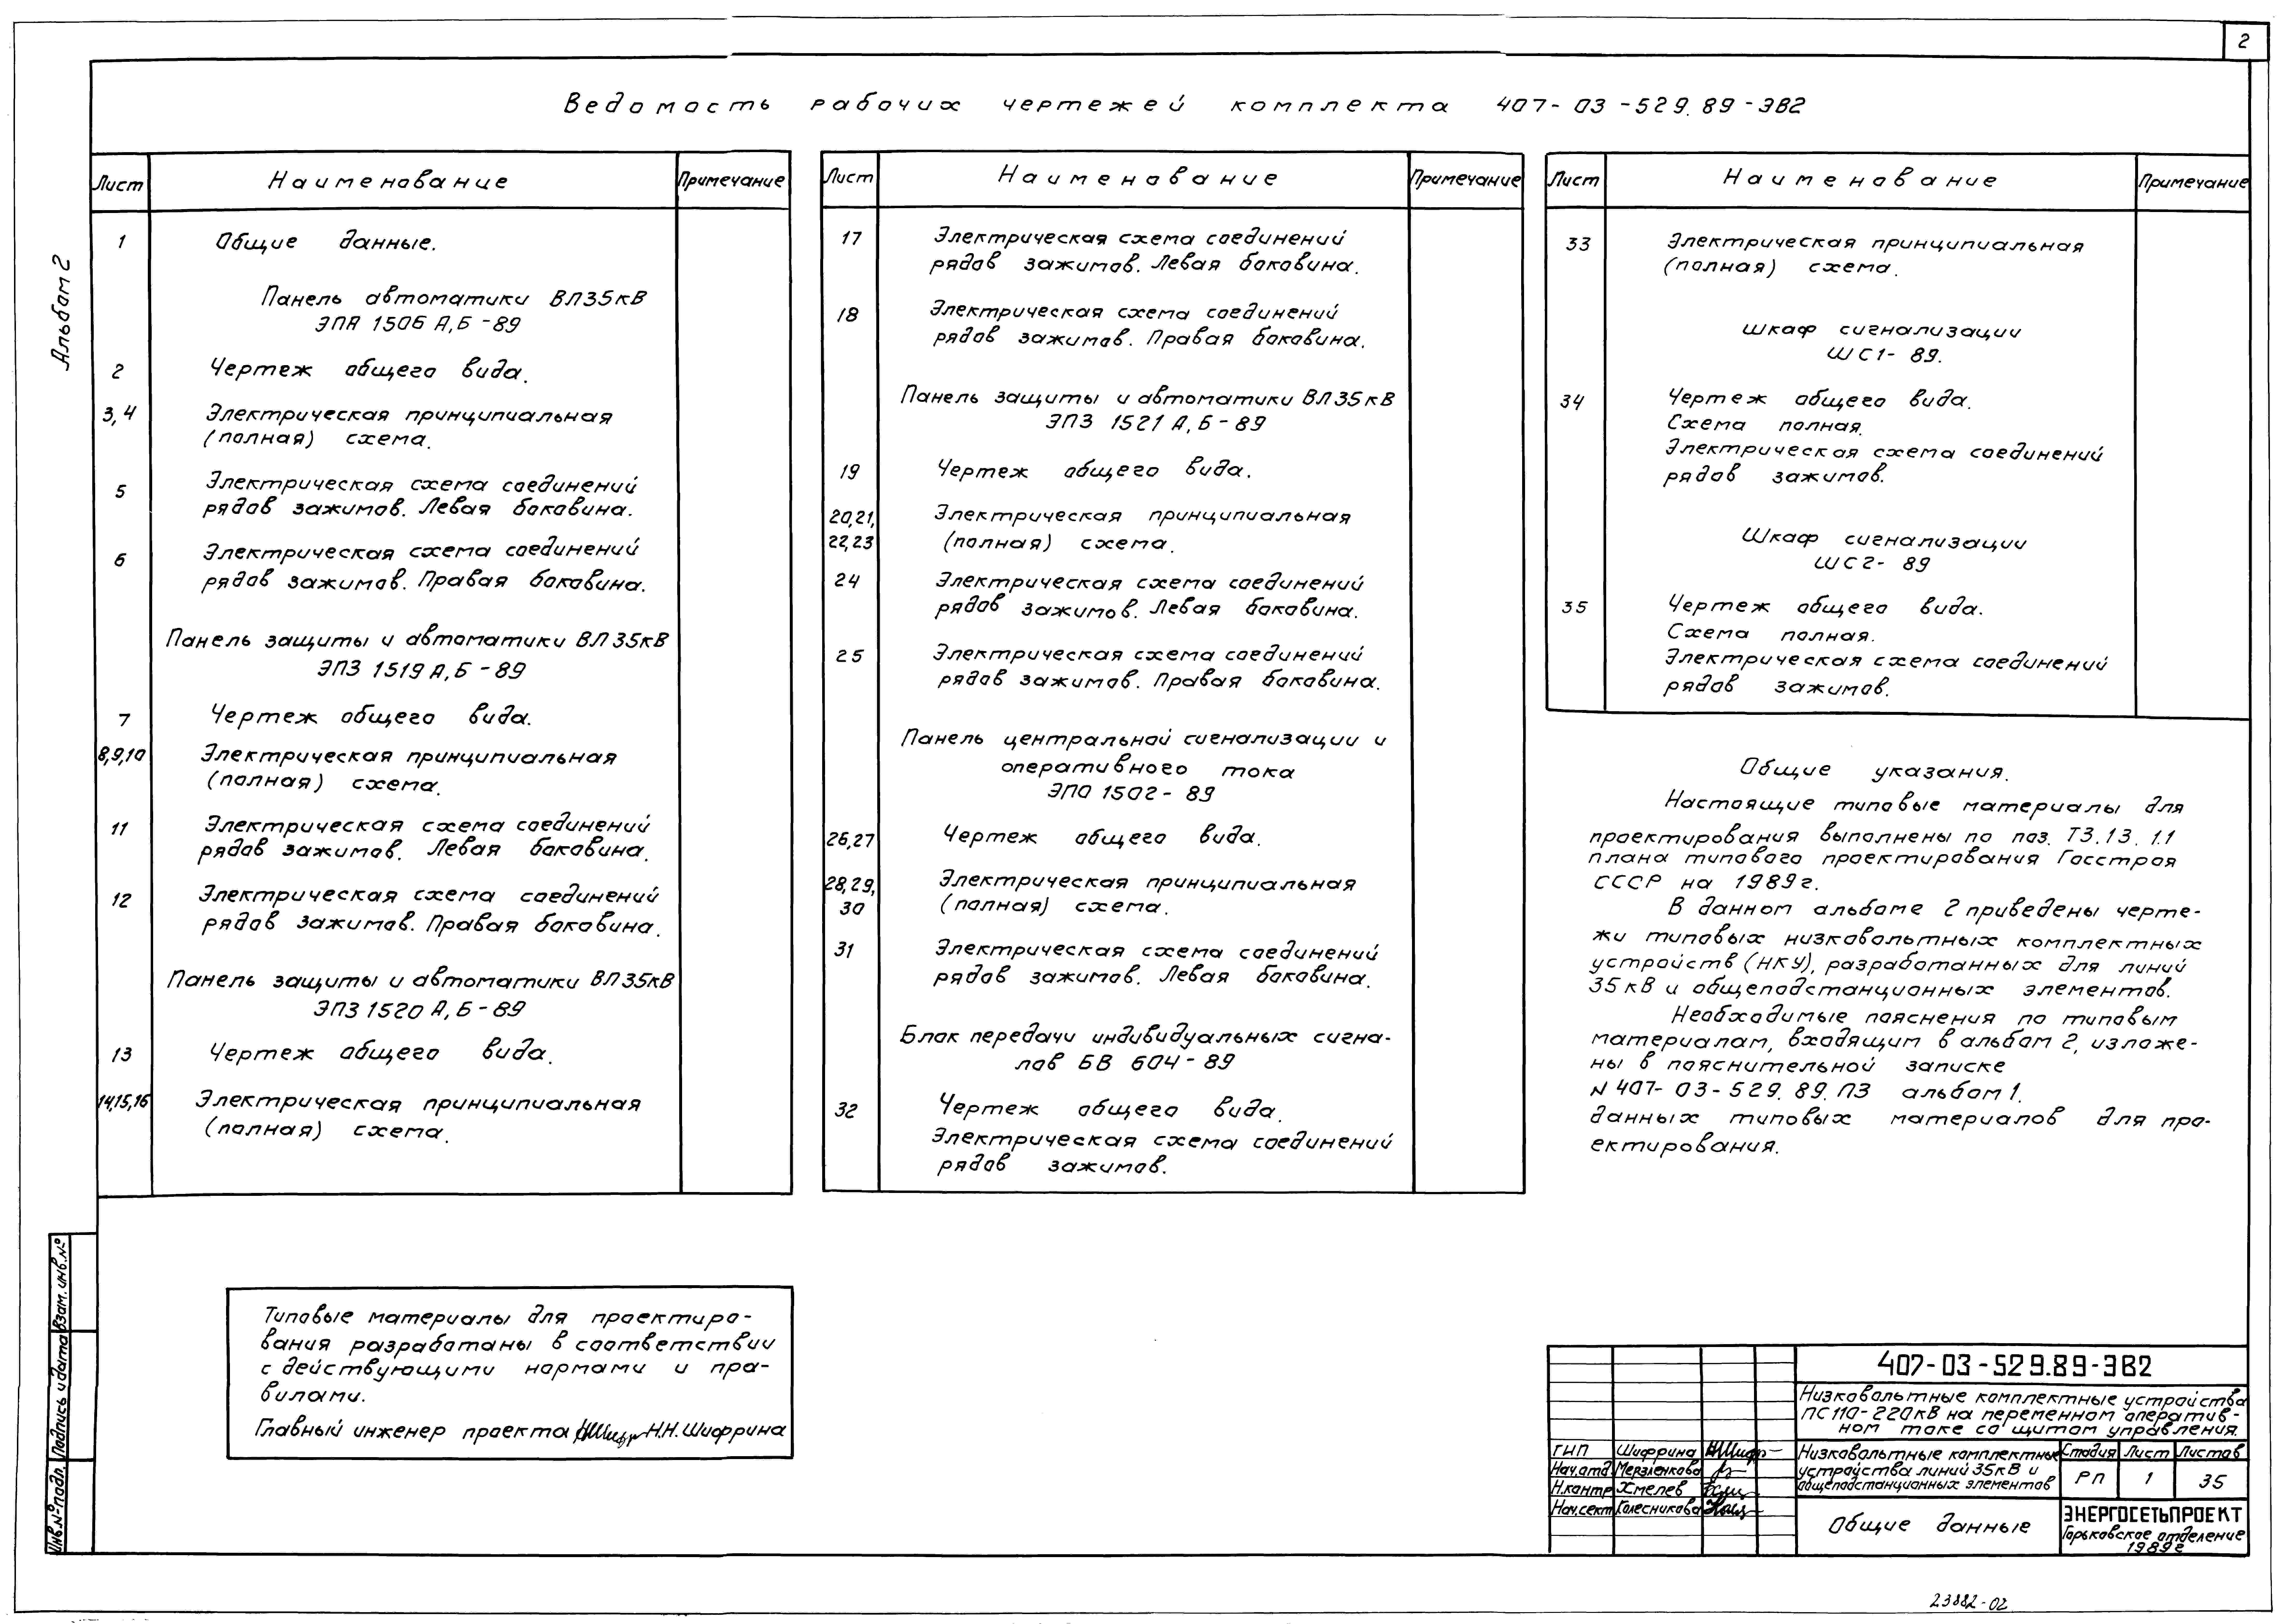 2
Альбом 2
Ведомость рабочих чертежей комплекта 407-03-529.89-ЭВ2
Лист Наименование Примечание
1 Общие данные.
Панель автоматики ВЛ35кВ
ЭПА 1506 А,Б-89
2 Чертеж общего вида.
3,4 Электрическая принципиальная
(полная) схема.
5 Электрическая схема соединений
рядов зажимов. Левая боковина.
6 Электрическая схема соединений
рядов зажимов. Правая боковина.
Панель защиты и автоматики ВЛ35кВ
ЭПЗ 1519 А,Б-89
7 Чертеж общего вида.
8,9,10 Электрическая принципиальная
(полная) схема.
11 Электрическая схема соединений
рядов зажимов. Левая боковина.
12 Электрическая схема соединений
рядов зажимов. Правая боковина.
Панель защиты и автоматики ВЛ35кВ
ЭПЗ 1520 А,Б-89
13 Чертеж общего вида.
14,15,16 Электрическая принципиальная
(полная) схема.
Лист Наименование Примечание
17 Электрическая схема соединений
рядов зажимов. Левая боковина.
18 Электрическая схема соединений
рядов зажимов. Правая боковина.
Панель защиты и автоматики ВЛ35кВ
ЭПЗ 1521 А,Б-89
19 Чертеж общего вида.
20,21, Электрическая принципиальная
22,23 (полная) схема.
24 Электрическая схема соединений
рядов зажимов. Левая боковина.
25 Электрическая схема соединений
рядов зажимов. Правая боковина.
Панель центральной сигнализации и
оперативного тока
ЭПО 1502-89
26,27 Чертеж общего вида.
28,29, Электрическая принципиальная
30 (полная) схема.
31 Электрическая схема соединений
рядов зажимов. Левая боковина.
Блок передачи индивидуальных сигна-
лов БВ 604-89
32 Чертеж общего вида.
Электрическая схема соединений
рядов зажимов.
Лист Наименование Примечание
33 Электрическая принципиальная
(полная) схема.
Шкаф сигнализации
ШС1-89.
34 Чертеж общего вида.
Схема полная.
Электрическая схема соединений
рядов зажимов.
Шкаф сигнализации
ШС2-89
35 Чертеж общего вида.
Схема полная.
Электрическая схема соединений
рядов зажимов.
Общие указания.
Настоящие типовые материалы для
проектирования выполнены по поз. Т3.13.1.1
плана типового проектирования Госстроя
СССР на 1989г.
В данном альбоме 2 приведены черте-
жи типовых низковольтных комплектных
устройств (НКУ), разработанных для линий
35кВ и общеподстанционных элементов.
Необходимые пояснения по типовым
материалам, входящим в альбом 2, изложе-
ны в пояснительной записке
N 407-03-529.89.ПЗ альбом 1.
данных типовых материалов для про-
ектирования.
Типовые материалы для проектиро-
вания разработаны в соответствии
с действующими нормами и пра-
вилами.
Главный инженер проекта Н.Н.Шифрина
Взам. инв.№
Подпись и дата
Инв.№ подл.
407-03-529.89-ЭВ2
Низковольтные комплектные устройства
ПС110-220кВ на переменном оператив-
ном токе со щитом управления.
ГИП Шифрина
Нач.отд. Мерзленкова
Н.контр Хмелев
Нач.сект Колесникова
Низковольтные комплектные
устройства линий 35кВ и
общеподстанционных элементов
Стадия Лист Листов
РП 1 35
Общие данные
ЭНЕРГОСЕТЬПРОЕКТ
Горьковское отделение
1989г
23882-02